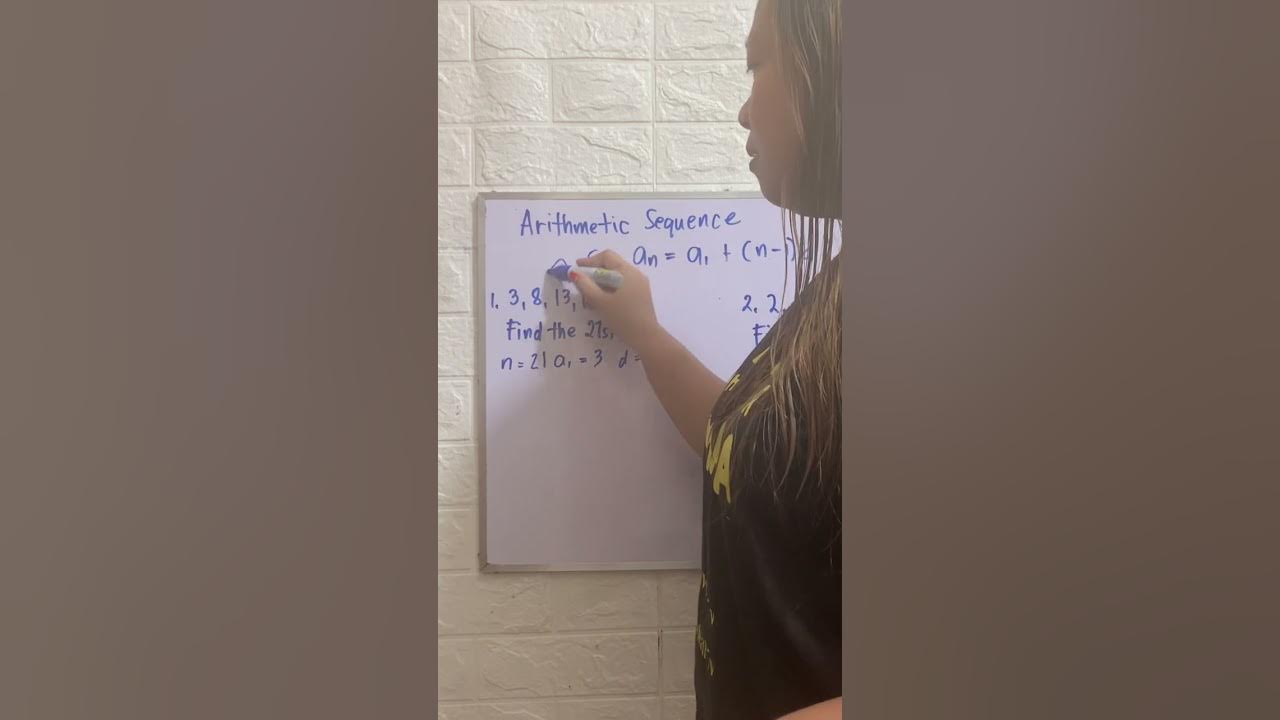 Arithmetic Sequence
an = a1 + (n-1)
1. 3, 8, 13,
Find the 21s
n = 21 a1 = 3 d =
2. 2,